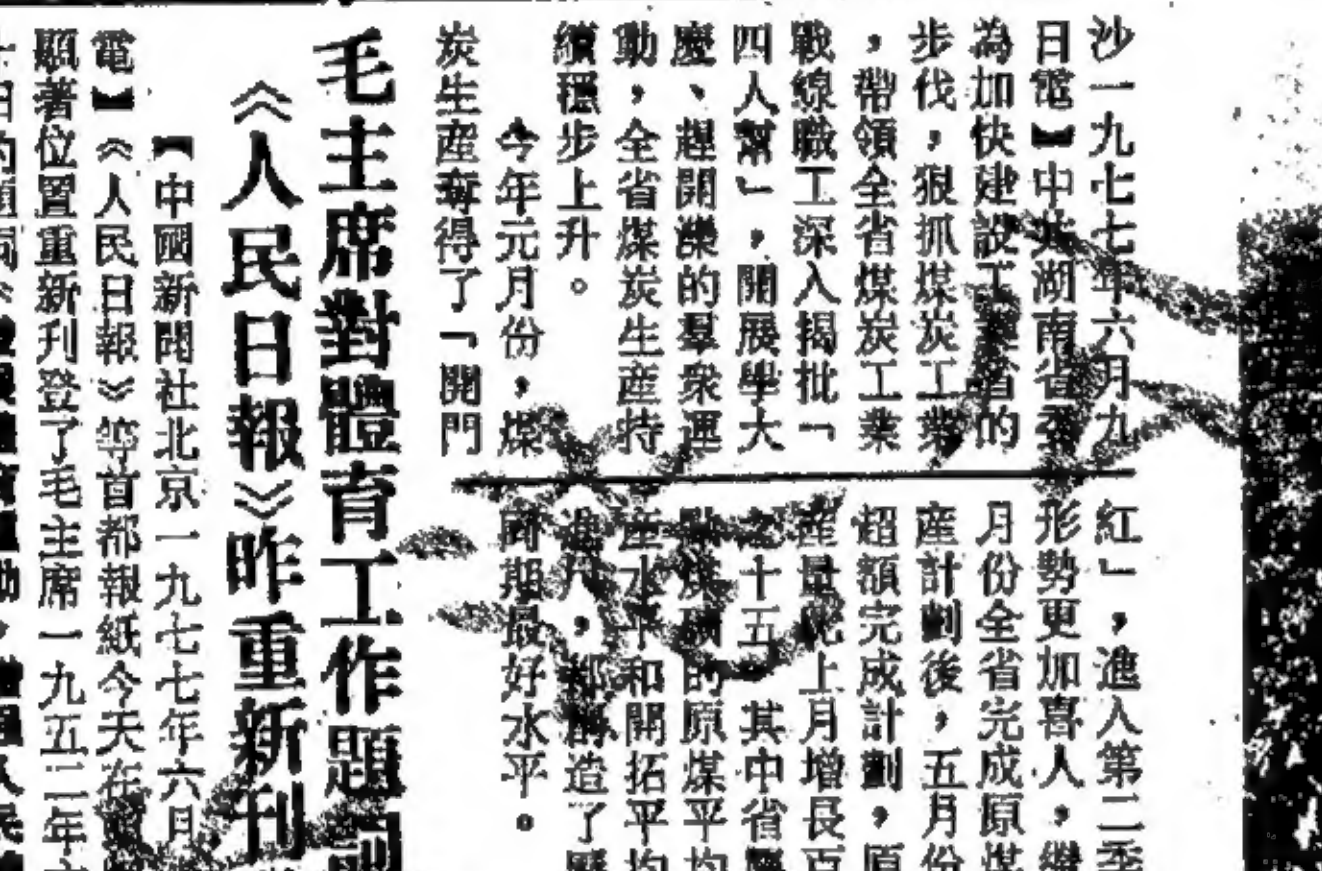 沙一九七七年六月九
日電】中共湖南省委
為加快建設工業省的
步伐，狠抓煤炭工業
，帶領全省煤炭工業
戰線職工深入揭批「
四人幫」，開展學大
慶、趕開灤的羣衆運
動，全省煤炭生産持
續穩步上升。
今年元月份，煤
炭生産奪得了「開門
紅」，進入第二季
形勢更加喜人，繼
月份全省完成原煤
産計劃後，五月份
超額完成計劃，原
産量比上月增長百
之十五，其中省屬
煤礦的原煤平均
産水平和開拓平均
進尺，都創造了歷
同期最好水平。
毛主席對體育工作題詞
《人民日報》昨重新刊
【中國新聞社北京一九七七年六月
電】《人民日報》等首都報紙今天在
顯著位置重新刊登了毛主席一九五二年六
十日的題詞